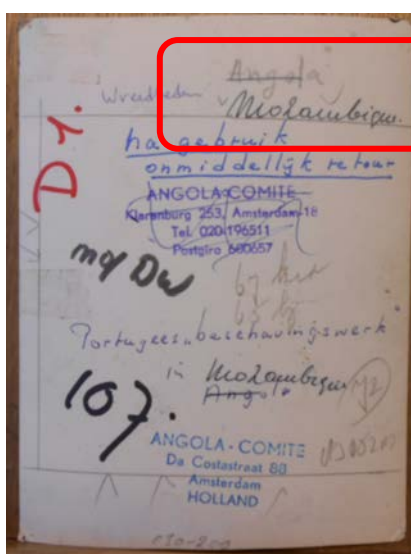 Angola
Wreedheden Mozambique.
D1.
na gebruik
onmiddellijk retour
ANGOLA-COMITE
Klarenburg 253, Amsterdam-18
Tel. 020-196511
Postgiro 600657
"Portugees beschavingswerk"
in Mozambique
Angola
107.
ANGOLA-COMITE
Da Costastraat 88
Amsterdam
HOLLAND